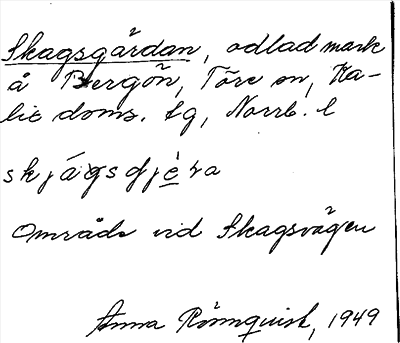 Skagsgårdan, odlad mark
å Bergön, Töre sn, Ka-
lix doms. lg, Norrb. l
skjágsgjèra
Område vid Skagsvägen
Anna Rönnquist, 1949